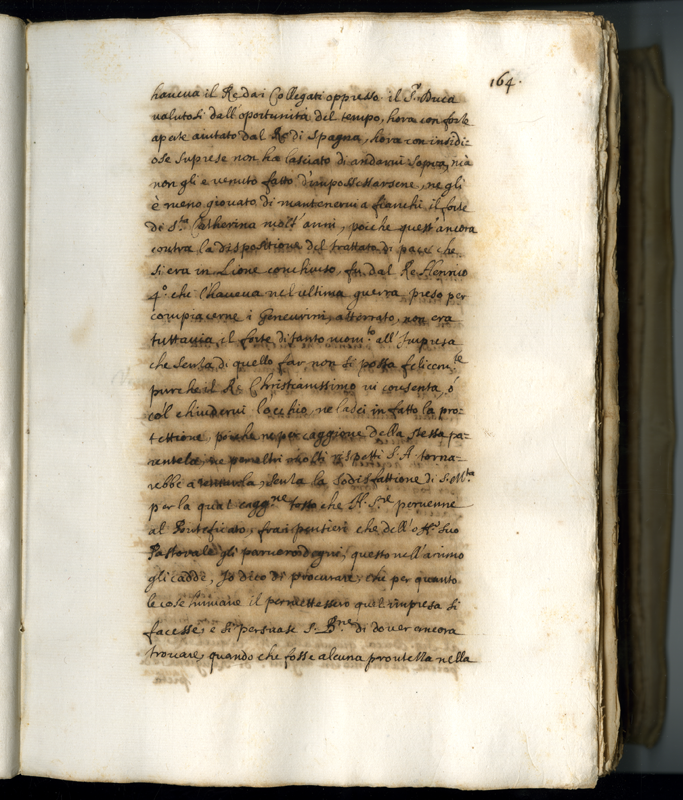 164.
haveva il Re da i Collegati oppresso il S.r Duca
valutosi dall'oportunità del tempo, hora con forte
aperte aiutato dal Re di Spagna, hora con insidi-
ose suprese non ha lasciato di andarvi sopra, mà
non gli è venuto fatto d'impossessarsene, ne gli
è meno giovato di mantenervi a fianchi il forte
di S.ta Catherina molt'anni, poiche quest'ancora
contra la dispositione del trattato di pace che
si era in Lione conchiuso, fu dal Re Henrico
4.o che l'haveva nel ultima guerra preso per
compiacerne i Genevrini, atterrato, non era
tuttavia il forte di tanto mom.to all'Impresa
che senza di quello far non si possa felicem.te
purche il Re Christianissimo vi consenta, ó
col chiudervi l'occhio, ne lasci in fatto la pro-
tettione, poiche ne per caggione della stessa pa-
rentela, ne per altri molti rispetti S. A. torna-
rebbe a tentarla, senza la sodisfattione di S. M.tà
per la qual cagg.ne tosto che S.re pervenne
al Pontificato, frai pensieri che dell'off.o suo
Pastorale gli parvero degni, questo nell'animo
gli cadde, Io dico di procurare, che per quanto
le cose humane il permettessero quell'impresa si
facesse, e si persuase S. B.ne di dover ancora
trovare, quando che fosse alcuna prontezza nella